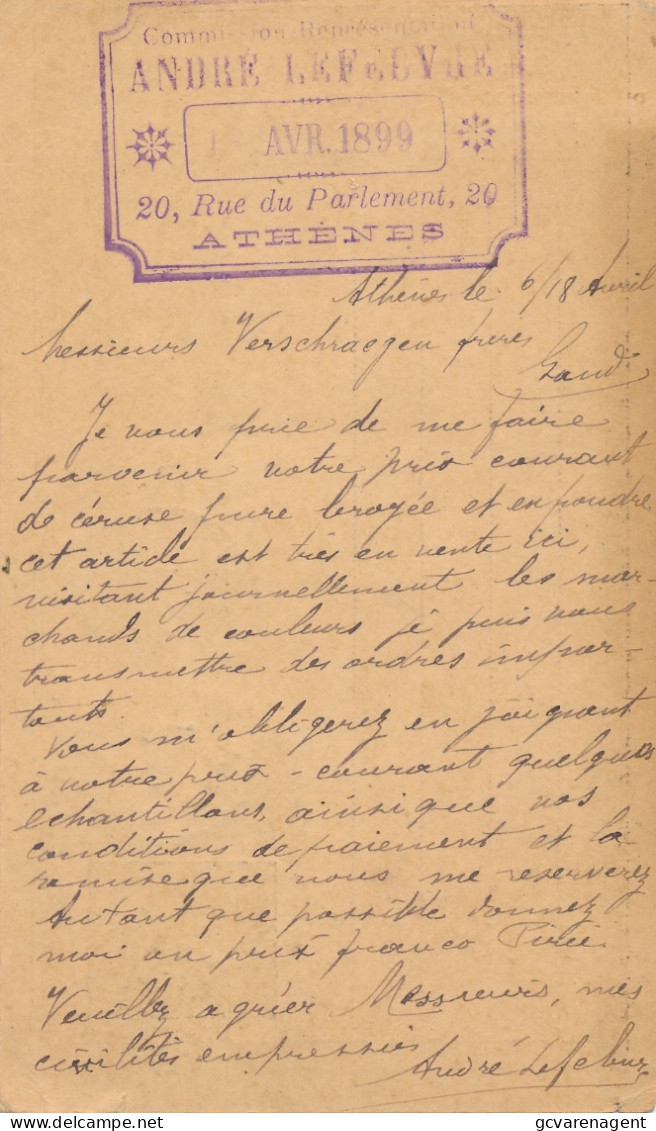 Commission Représentation
ANDRÉ LEFEBVRE
AVR. 1899
20, Rue du Parlement, 20
ATHÈNES
Athènes le 6/18 Avril
Messieurs Verschraegen frères
Gand
Je vous prie de me faire
parvenir votre prix courant
de céruse pure broyée et en poudre
cet article est très en vente ici,
visitant journellement les mar-
chands de couleurs je puis vous
transmettre des ordres impor-
tants.
Vous m'obligerez en joignant
à votre prix-courant quelques
echantillons, ainsi que vos
conditions de paiement et la
remise que vous me reserverez
Autant que possible donnez
moi un prix franco Pirée
Veuillez agréer Messieurs, mes
civilités empressées
André Lefebvre
delcampe.net
gcvarenagent